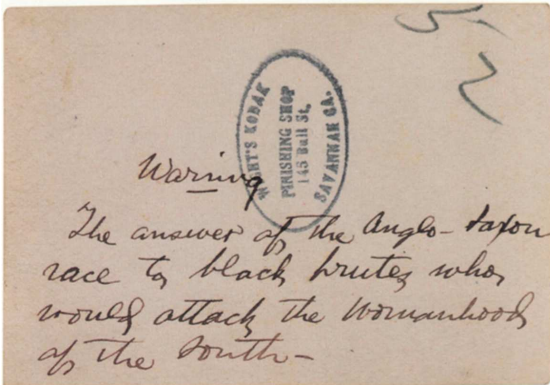 5 2
WIGHT'S KODAK
FINISHING SHOP
145 Bull St.
SAVANNAH GA.
Warning
The answer of the Anglo-Saxon
race to black brutes who
would attack the Womanhood
of the South-